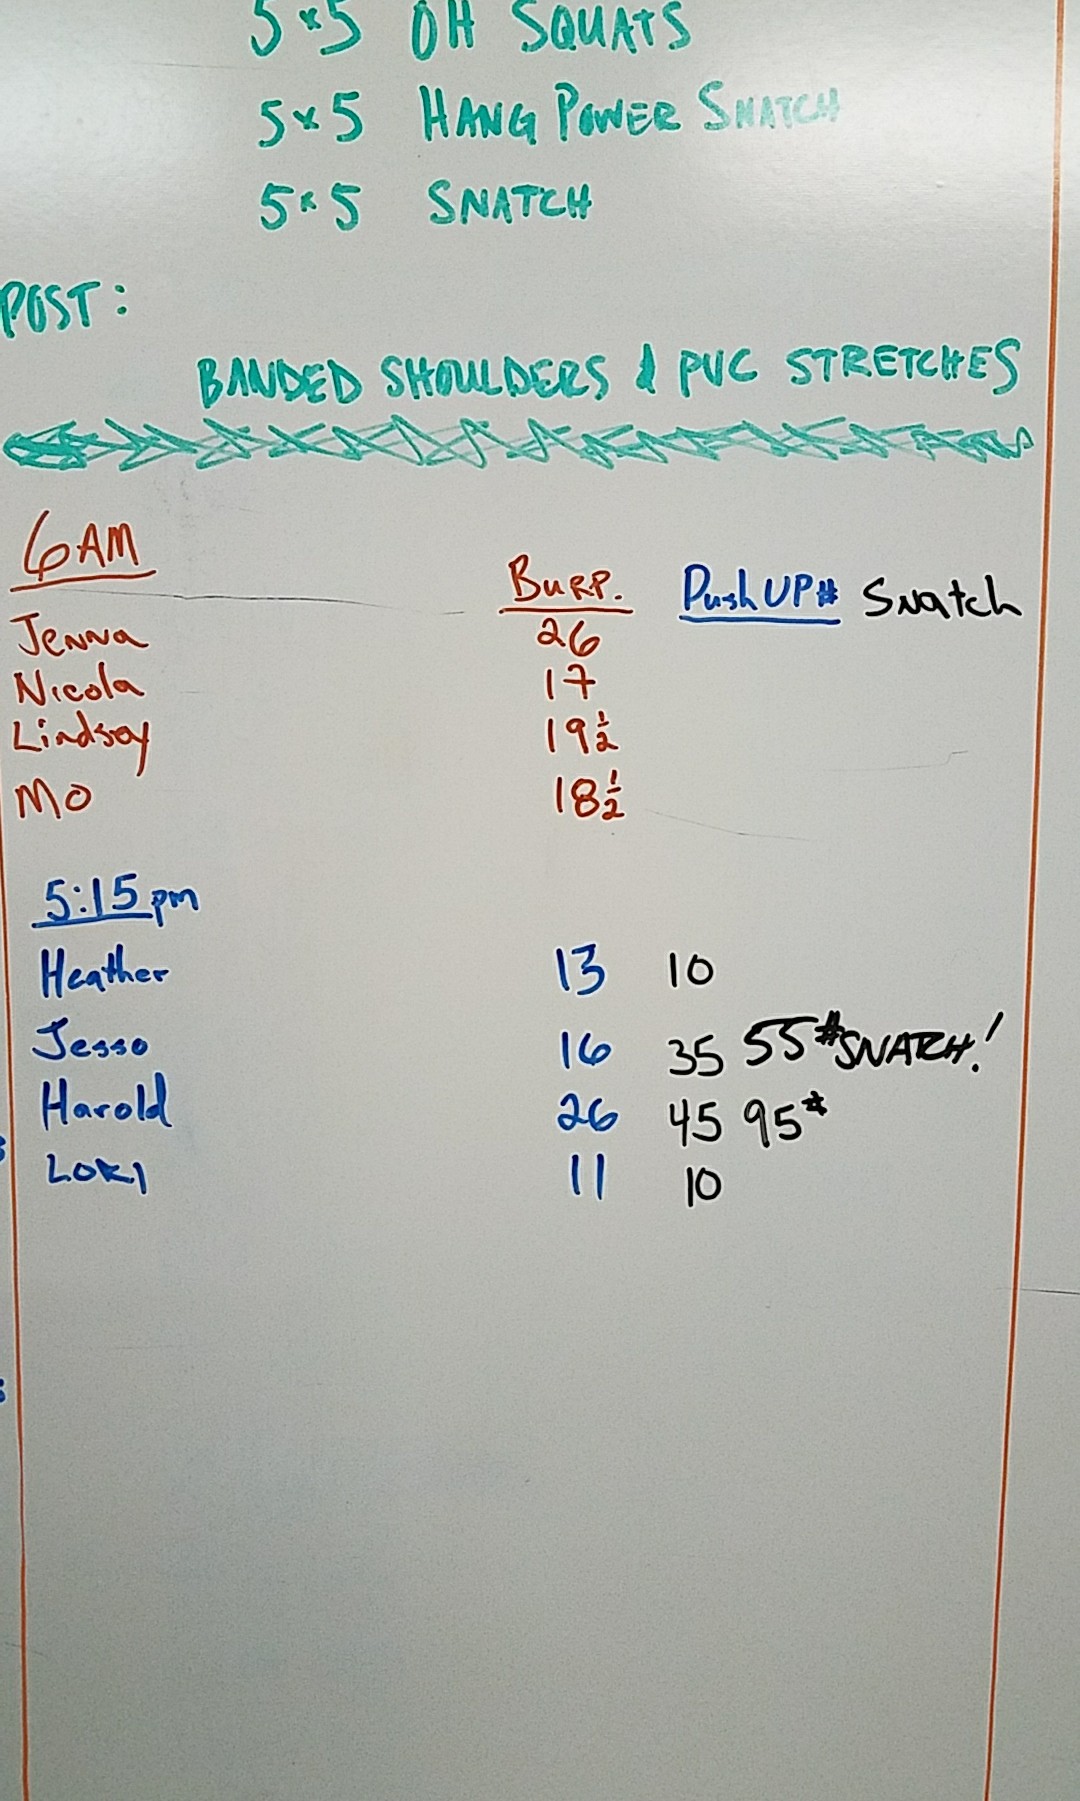 5x5 OH SQUATS
5x5 HANG POWER SNATCH
5x5 SNATCH
POST:
BANDED SHOULDERS & PVC STRETCHES
6AM BURP. PushUP# Snatch
Jenna 26
Nicola 17
Lindsay 19½
MO 18½
5:15pm
Heather 13 10
Jesso 16 35 55# SNATCH!
Harold 26 45 95#
LOKI 11 10